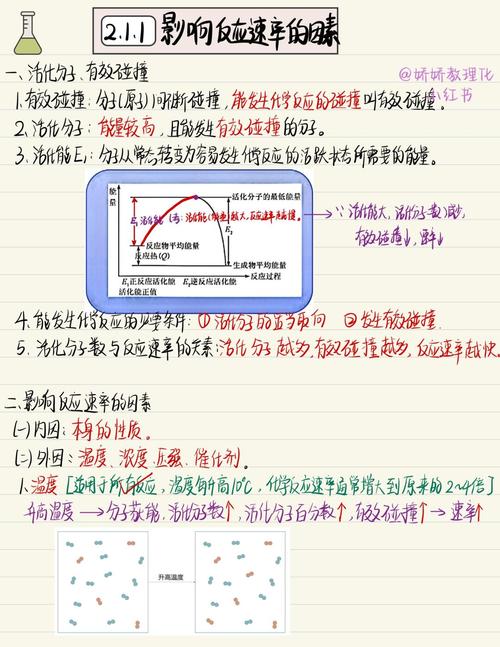 2.1.1 影响反应速率的因素
一、活化分子、有效碰撞
@娇娇教理化
小红书
1.有效碰撞:分子(原子)间不断碰撞,能发生化学反应的碰撞叫有效碰撞。
2.活化分子:能量较高,且能发生有效碰撞的分子。
3.活化能E₁:分子从常态转变为容易发生化学反应的活跃状态所需要的能量。
能量
活化分子的最低能量
E₁ 活化能
活化能
越大,反应速率越慢。
E₂
反应物平均能量
反应热(Q)
生成物平均能量
E₁正反应活化能 E₂逆反应活化能 反应过程
活化能正值
∵活化能大,活化分子数少,
有效碰撞↓,速率↓
4.能发生化学反应的必要条件:①活化分子的适当取向 ②发生有效碰撞.
5.活化分子数与反应速率的关系:活化分子越多,有效碰撞越多,反应速率越快。
二.影响反应速率的因素
(一)内因:本身的性质。
(二)外因:温度、浓度、压强、催化剂。
1.温度[适用于所有反应,温度每升高10℃,化学反应速率通常增大到原来的2~4倍]
升高温度→分子获能,活化分子数↑,活化分子百分数↑,有效碰撞↑→速率↑
升高温度